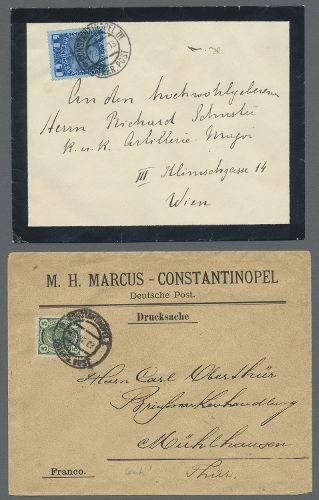 CONSTANTINOPEL III
POST
An den hochwohlgeborenen
Herrn Richard Schuster
K. u. K. Artillerie-
III Klimschgasse 14
Wien
M. H. MARCUS - CONSTANTINOPEL
Deutsche Post.
Drucksache
5 5
Herrn Carl Oberthür
Briefmarkenhandlung
Mühlhausen
Thür.
Franco.